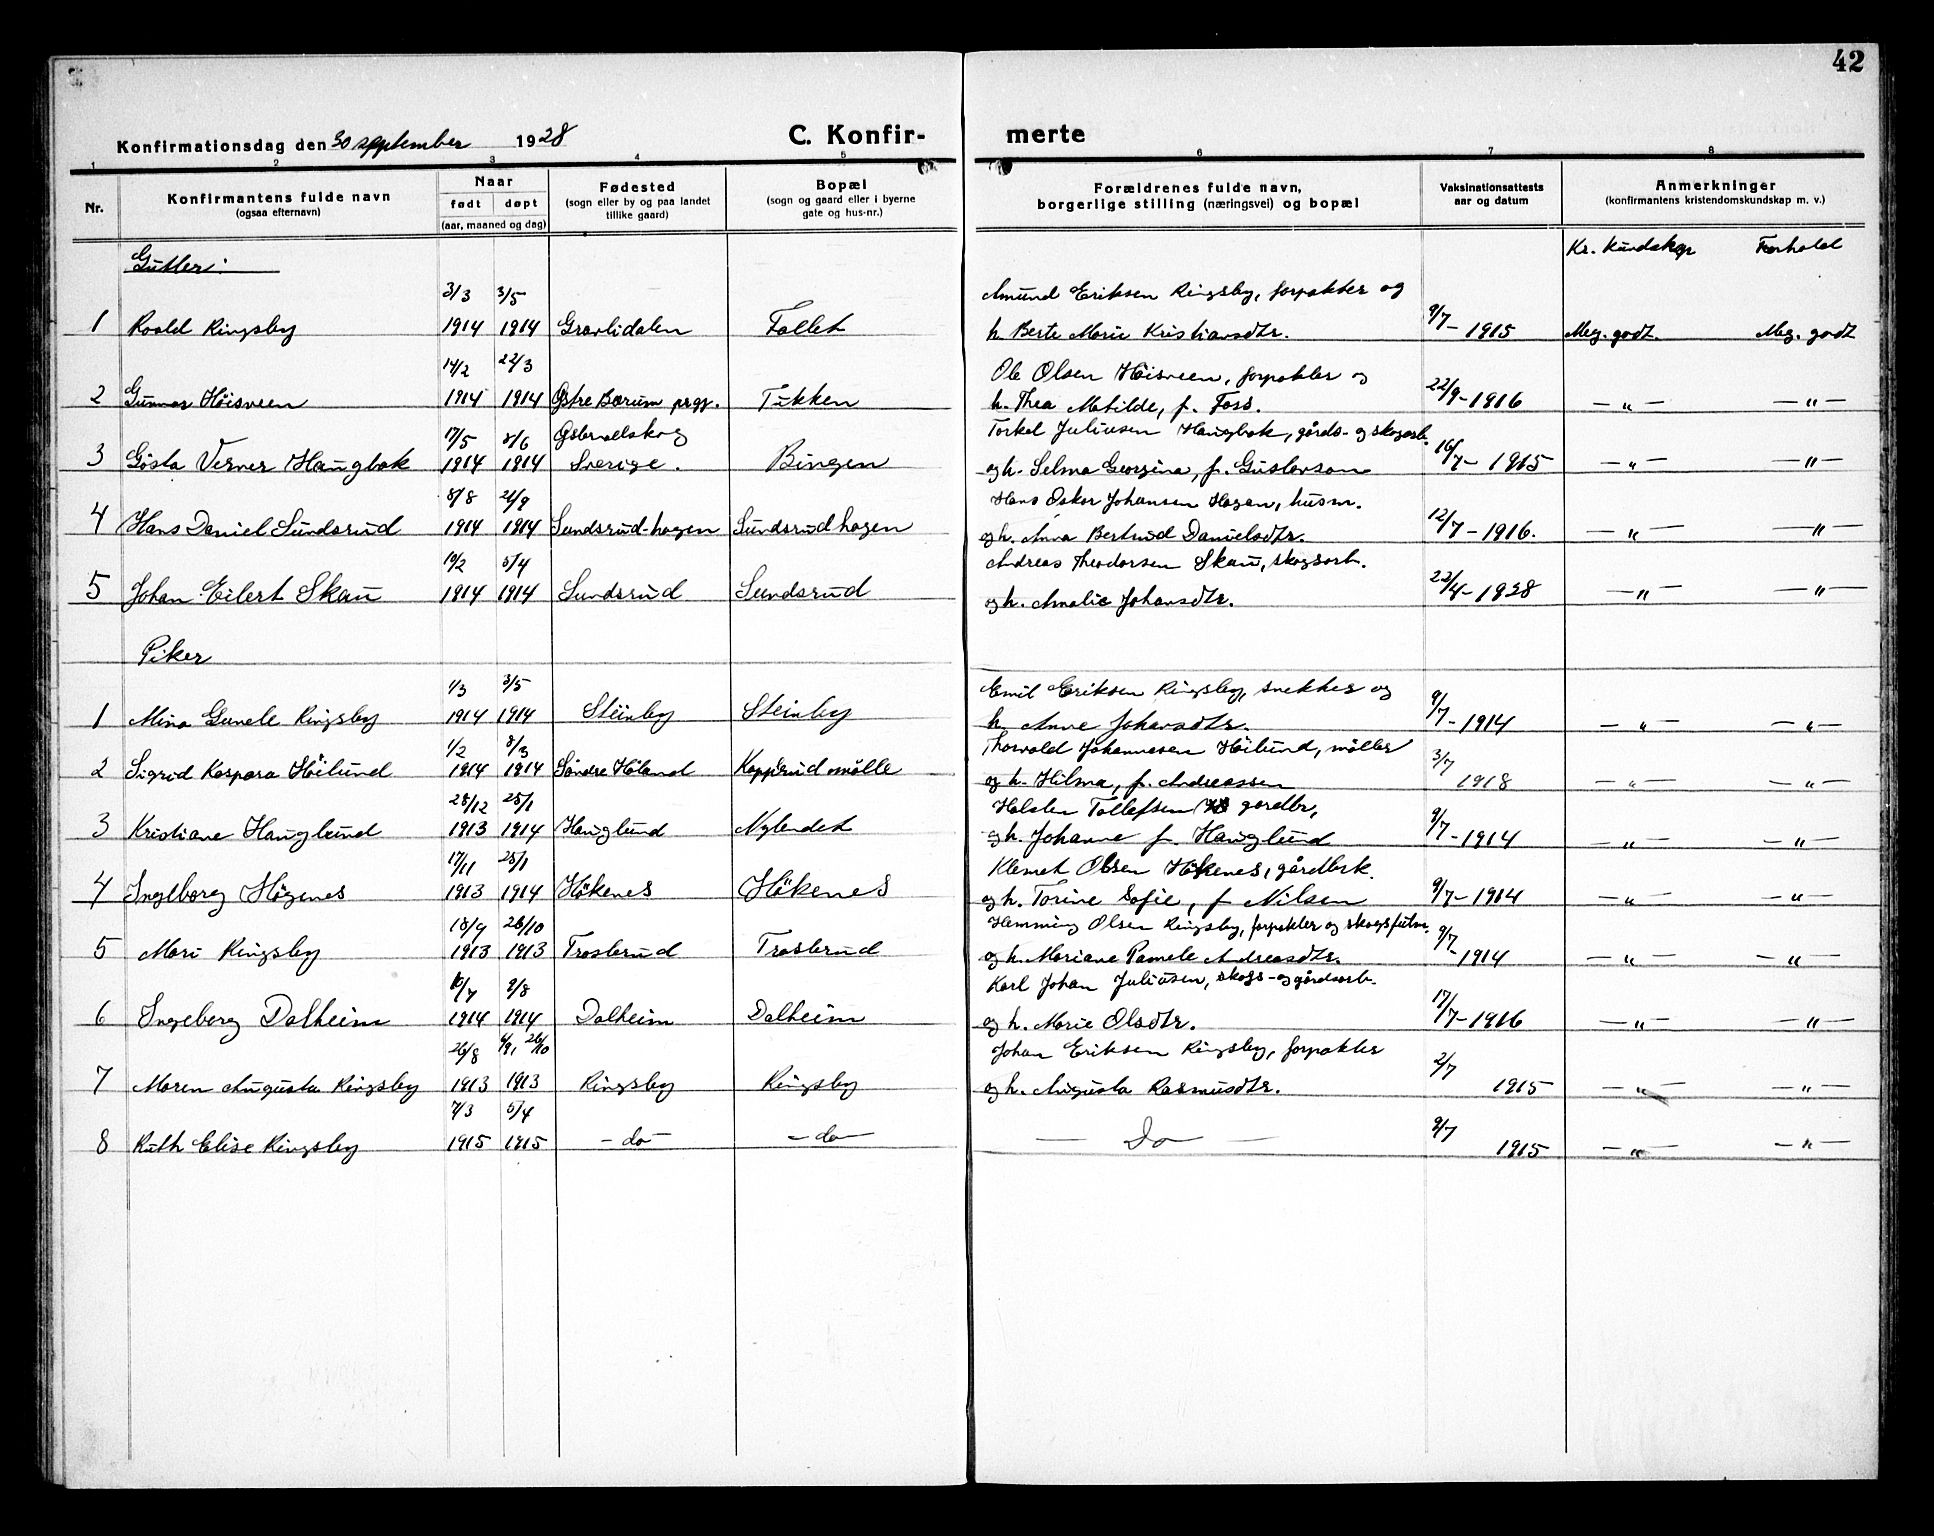 42
Konfirmationsdag den 30 september 1928
C. Konfir- merte
1 2 3 4 5 6 7 8
Nr. Konfirmantens fulde navn (ogsaa efternavn) Naar født døpt (aar, maaned og dag) Fødested (sogn eller by og paa landet tillike gaard) Bopæl (sogn og gaard eller i byerne gate og hus-nr.) Forældrenes fulde navn, borgerlige stilling (næringsvei) og bopæl Vaksinationsattests aar og datum Anmerkninger (konfirmantens kristendomskundskap m. v.)
Gutter: Kr. Kundskap Forhold
3/3 3/5 Amund Eriksen Ringsby, forpakter og
1 Roald Ringsby 1914 1914 Gravlidalen Fallet h. Berte Marie Kristiansdtr. 9/7-1915 Meg. godt. Meg. godt
14/2 22/3 Ole Olsen Höisveen, forpakter og
2 Gunnar Höisveen 1914 1914 Østre Bærum prgj. Tukken h. Thea Matilde, f. Foss. 22/9-1916 — " — — " —
17/5 8/6 Östervallskog Torkel Juliusen Haugbak, gårds- og skogsarb.
3 Gösta Verner Haugbak 1914 1914 Sverige. Bingen og h. Selma Georgina, f. Gustavson 16/7-1915 — " — — " —
8/8 21/9 Hans Oskar Johansen Hagen, husm.
4 Hans Daniel Sundsrud 1914 1914 Sundsrud-hagen Sundsrudhagen og h. Anna Bertrud Danielsdtr. 12/7-1916. — " — — " —
10/2 5/4 Andreas Theodorsen Skau, skogsarb.
5 Johan Eilert Skau 1914 1914 Sundsrud Sundsrud og h. Amalie Johansdtr. 22/4-1928 — " — — " —
Piker
1/3 3/5 Emil Eriksen Ringsby, snekker og
1 Mina Gunele Ringsby 1914 1914 Steinby Steinby h. Anne Johansdtr. 9/7-1914 — " — — " —
1/2 8/3 Thorvald Johannesen Höilund, möller
2 Sigrid Kaspara Höilund 1914 1914 Söndre Höland Kopperudmölle og h. Hilma, f. Andreassen 3/7 1918 — " — — " —
28/12 25/1 Halsten Tollefsen gardbr,
3 Kristiane Hauglund 1913 1914 Hauglund Nylendet og h. Johanne f. Hauglund 9/7-1914 — " — — " —
17/11 25/1 Klemet Olsen Hökenes, gårdbrk.
4 Ingeborg Högenes 1913 1914 Hökenes Hökenes og h. Torine Sofie, f Nilsen 9/7-1914 — " — — " —
18/9 26/10 Hemming Olsen Ringsby, forpakter og skogsfutm.
5 Mari Ringsby 1913 1913 Trosterud Trosterud og h. Mariane Pamele Andreasdtr. 9/7-1914 — " — — " —
10/7 9/8 Karl Johan Juliusen, skogs- og gårdsarb.
6 Ingeborg Dalheim 1914 1914 Dalheim Dalheim og h. Marie Olsdtr. 17/7-1916 — " — — " —
26/8 4/9, 26/10 Johan Eriksen Ringsby, forpakter
7 Maren Augusta Ringsby 1913 1913 Ringsby Ringsby og h. Augusta Rasmusdtr. 2/7 1915 — " — — " —
7/3 5/4
8 Ruth Elise Ringsby 1915 1915 — do — — do — — Do — 9/7 1915 — " — — " —